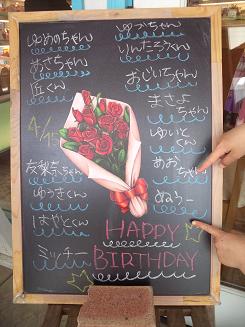 ゆめのちゃん
匠くん
4/15
友梨奈ちゃん
ゆうさくん
はやとくん
ミッチー
ゆかちゃん
りんたろうくん
おじいちゃん
まさよ
ちゃん
ゆいと
くん
めお
ちゃん
ぬろー
HAPPY
BIRTHDAY